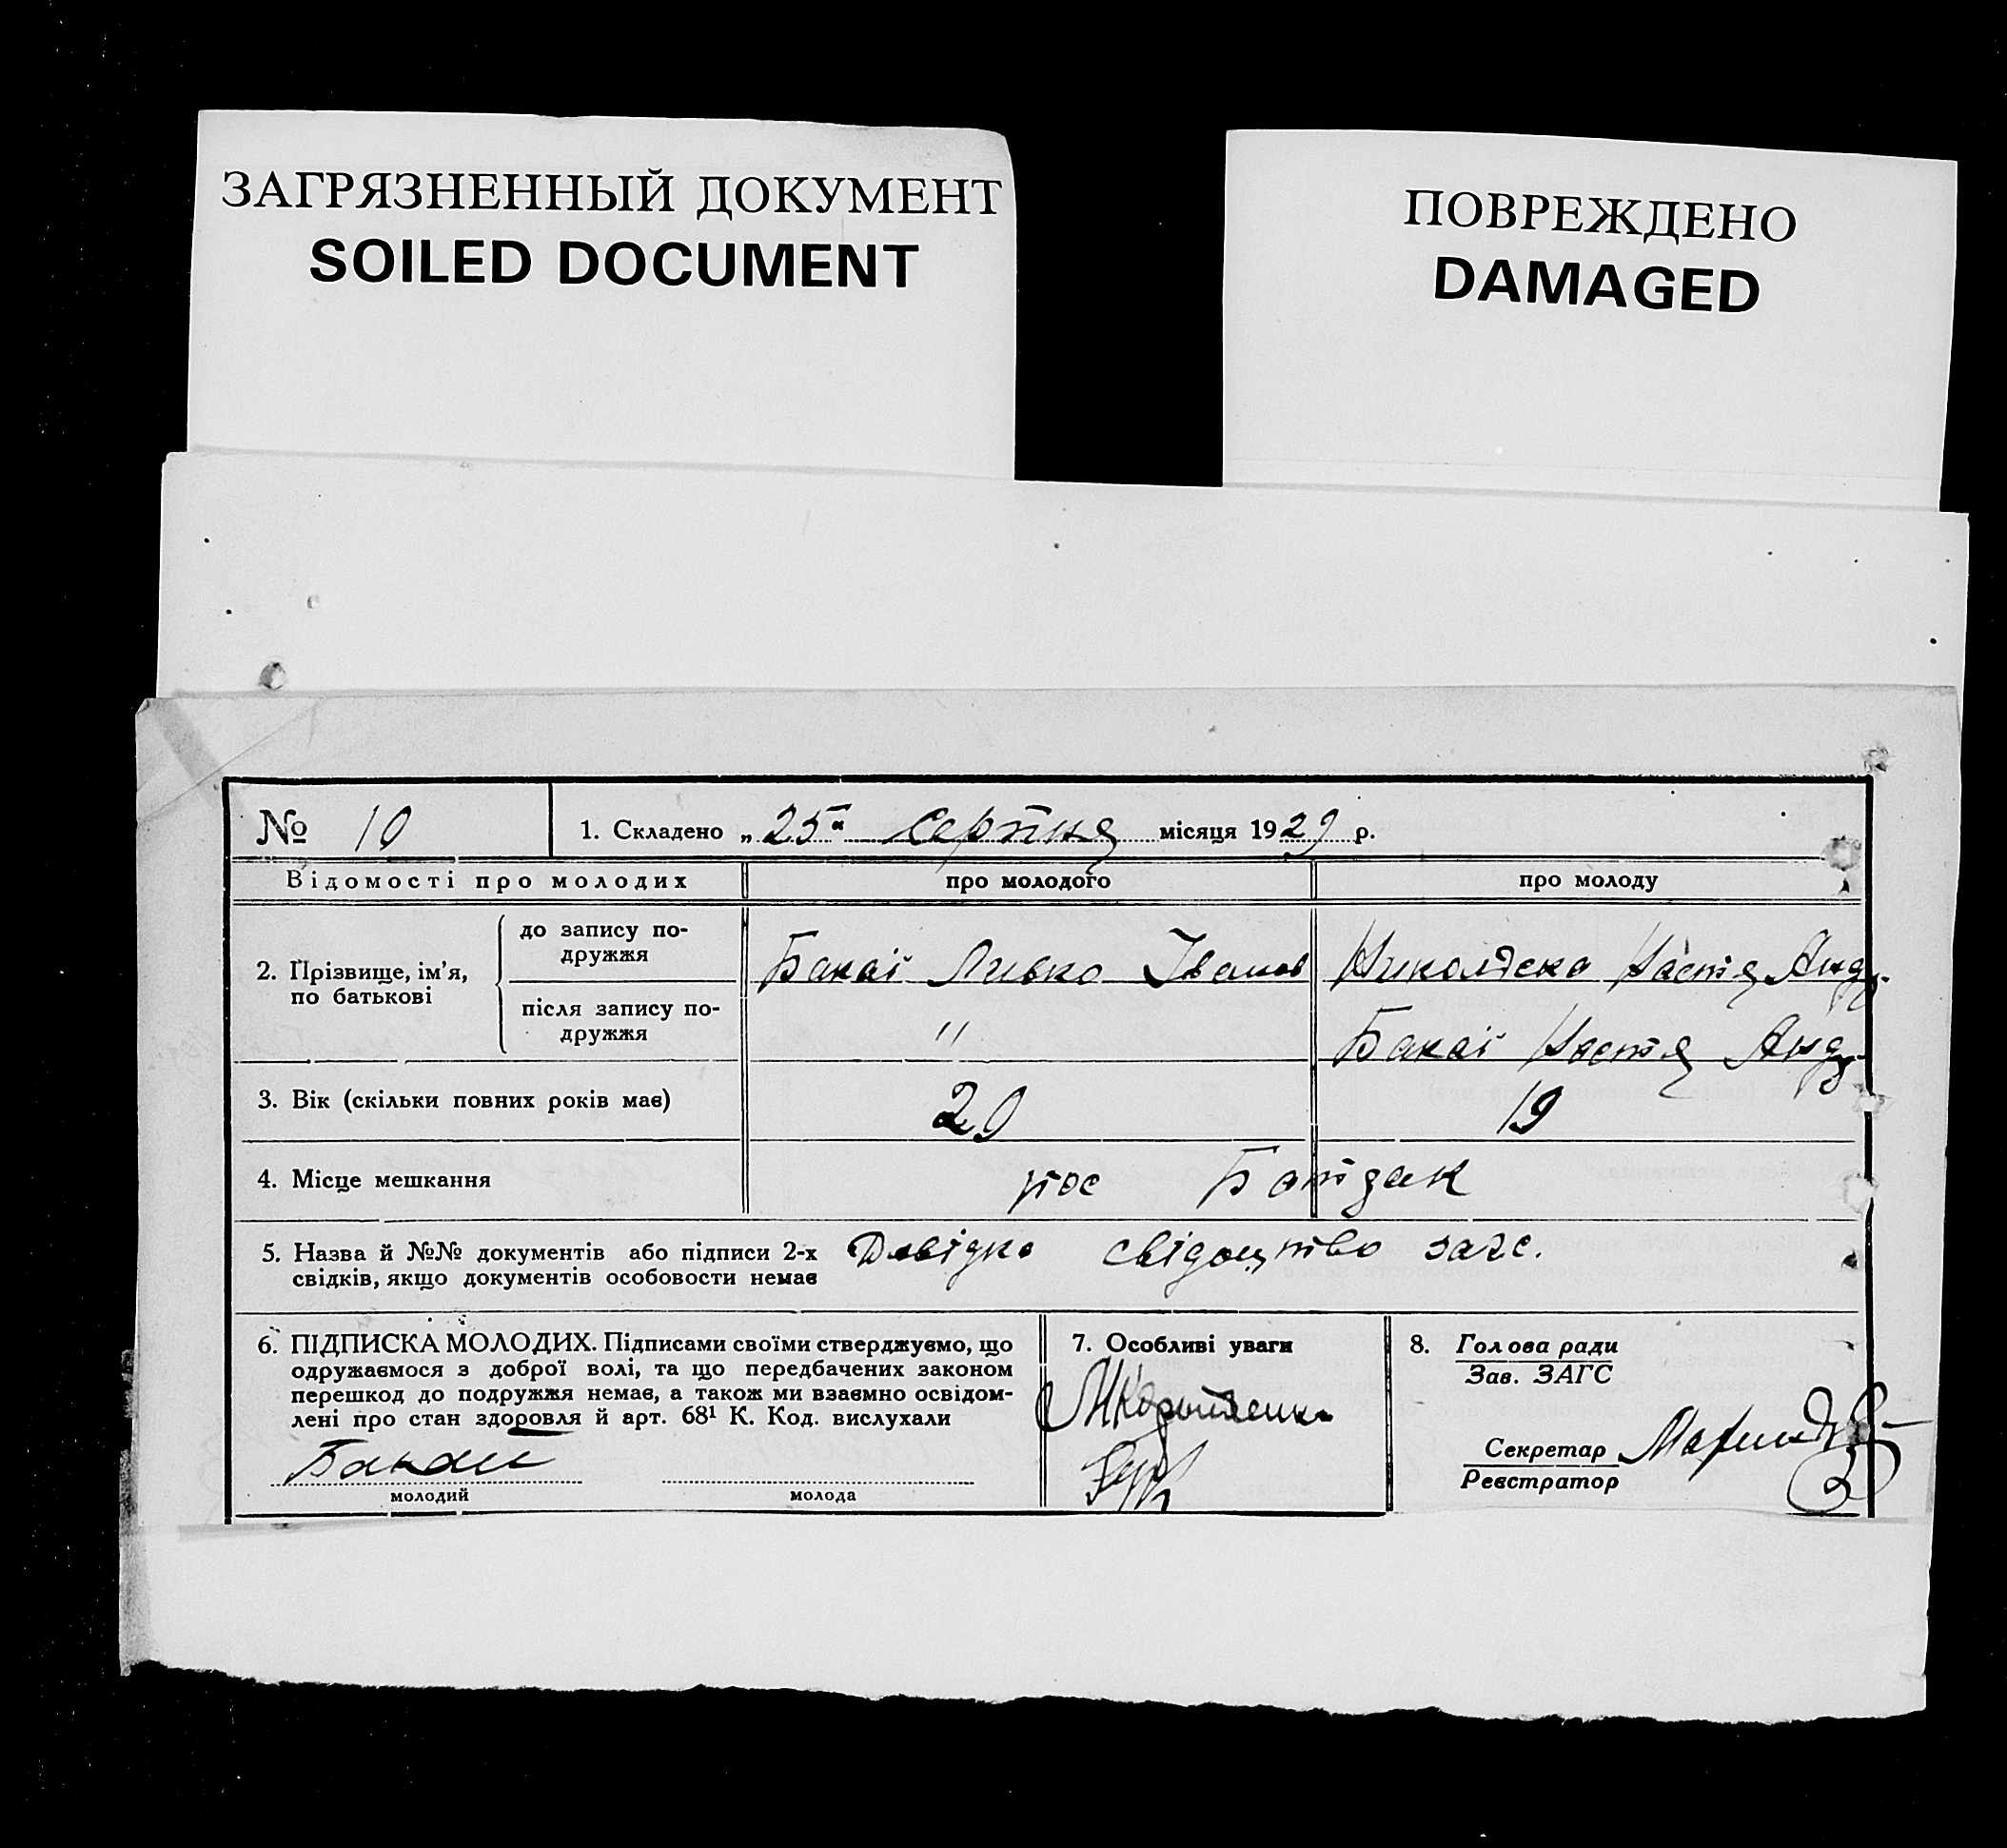 ЗАГРЯЗНЕННЫЙ ДОКУМЕНТ
SOILED DOCUMENT
ПОВРЕЖДЕНО
DAMAGED
№ 10
1. Складено „25“ Серпня місяця 1929 р.
Відомості про молодих
про молодого
про молоду
2. Прізвище, ім'я, по батькові
до запису по-
дружжя
Бакай Левко Іванов
Настя Анд.
після запису по-
дружжя
"
Бакай Настя Анд.
3. Вік (скільки повних років має)
20
19
4. Місце мешкання
пос
5. Назва й №№ документів або підписи 2-х
свідків, якщо документів особовости немає
Довідка свідоцтво загс.
6. ПІДПИСКА МОЛОДИХ. Підписами своїми стверджуємо, що
одружаємося з доброї волі, та що передбачених законом
перешкод до подружжя немає, а також ми взаємно освідом-
лені про стан здоровля й арт. 68¹ К. Код. вислухали
Бакай
молодий
молода
7. Особливі уваги
8. Голова ради
Зав. ЗАГС
Секретар
Реєстратор